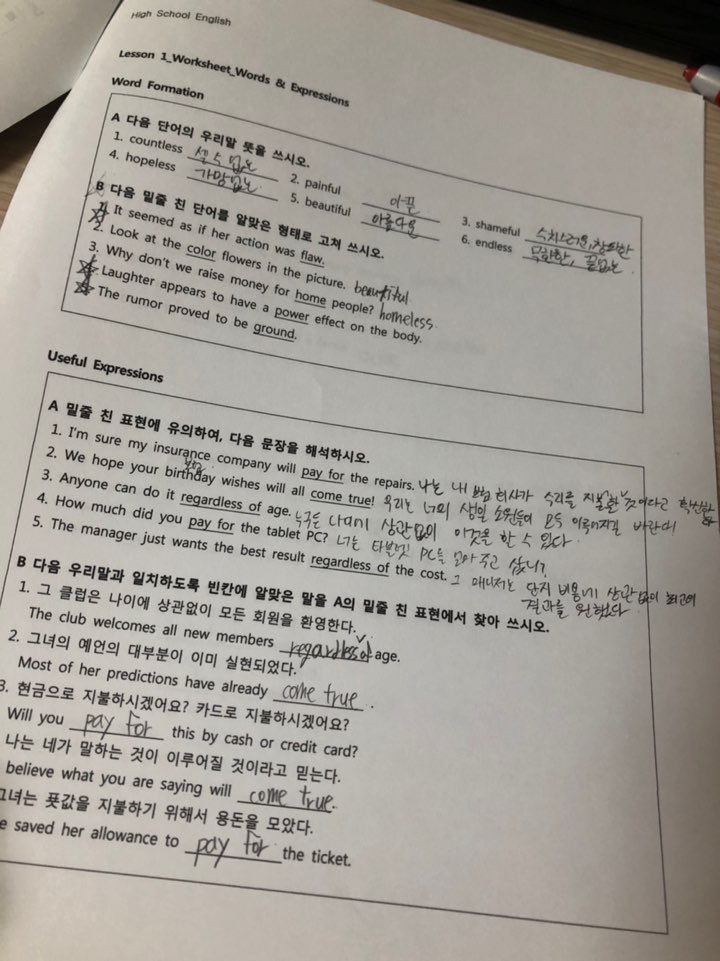 High School English
Lesson 1_Worksheet_Words & Expressions
Word Formation
A 다음 단어의 우리말 뜻을 쓰시오.
1. countless 셀 수 없는 2. painful 아픈 3. shameful 수치스러운, 창피한
4. hopeless 가망없는 5. beautiful 아름다운 6. endless 무한한, 끝없는
B 다음 밑줄 친 단어를 알맞은 형태로 고쳐 쓰시오.
1. It seemed as if her action was flaw.
2. Look at the color flowers in the picture. beautiful
3. Why don't we raise money for home people? homeless
Laughter appears to have a power effect on the body.
The rumor proved to be ground.
Useful Expressions
A 밑줄 친 표현에 유의하여, 다음 문장을 해석하시오.
1. I'm sure my insurance company will pay for the repairs. 나는 내 보험 회사가 수리를 지불할 것이라고 확신한다
보험
2. We hope your birthday wishes will all come true! 우리는 너의 생일 소원들이 모두 이루어지길 바란다!
3. Anyone can do it regardless of age. 누구든 나이에 상관없이 이것을 할 수 있다.
4. How much did you pay for the tablet PC? 너는 타블렛 PC를 얼마 주고 샀니?
5. The manager just wants the best result regardless of the cost. 그 매니저는 단지 비용에 상관없이 최고의
결과를 원했다
B 다음 우리말과 일치하도록 빈칸에 알맞은 말을 A의 밑줄 친 표현에서 찾아 쓰시오.
1. 그 클럽은 나이에 상관없이 모든 회원을 환영한다.
The club welcomes all new members regardless of age.
2. 그녀의 예언의 대부분이 이미 실현되었다.
Most of her predictions have already come true.
3. 현금으로 지불하시겠어요? 카드로 지불하시겠어요?
Will you pay for this by cash or credit card?
나는 네가 말하는 것이 이루어질 것이라고 믿는다.
believe what you are saying will come true.
그녀는 푯값을 지불하기 위해서 용돈을 모았다.
e saved her allowance to pay for the ticket.